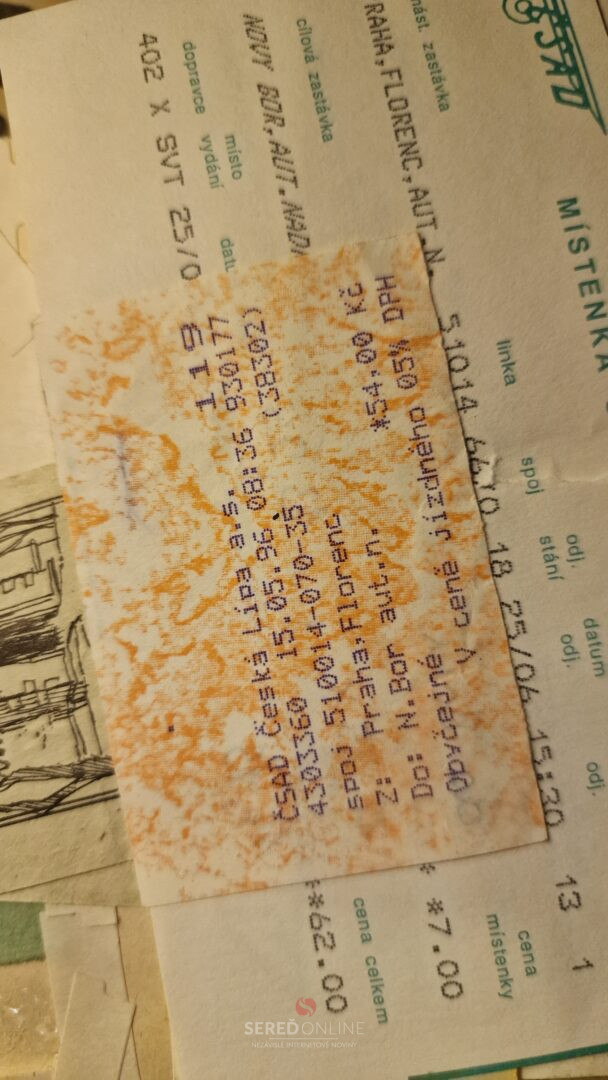 ČSAD
MÍSTENKA
nást. zastávka linka spoj odj. stání datum odj. odj.
RAHA,FLORENC,AUT.N. 18 25/04 15:30 13 1
cílová zastávka cena místenky
NOVY BOR,AUT.NADR * *7.00
dopravce místo vydání datu cena celkem
402 X SVT 25/0 **62.00
119
ČSAD Česká Lípa a.s. 930177
4303360 15.05.96 08:36 (38302)
spoj 510014-070-35
Z: Praha,Florenc
Do: N.Bor aut.n. *54.00 Kč
Obyčejné V ceně jízdného 05% DPH
SEREĎONLINE
NEZÁVISLÉ INTERNETOVÉ NOVINY